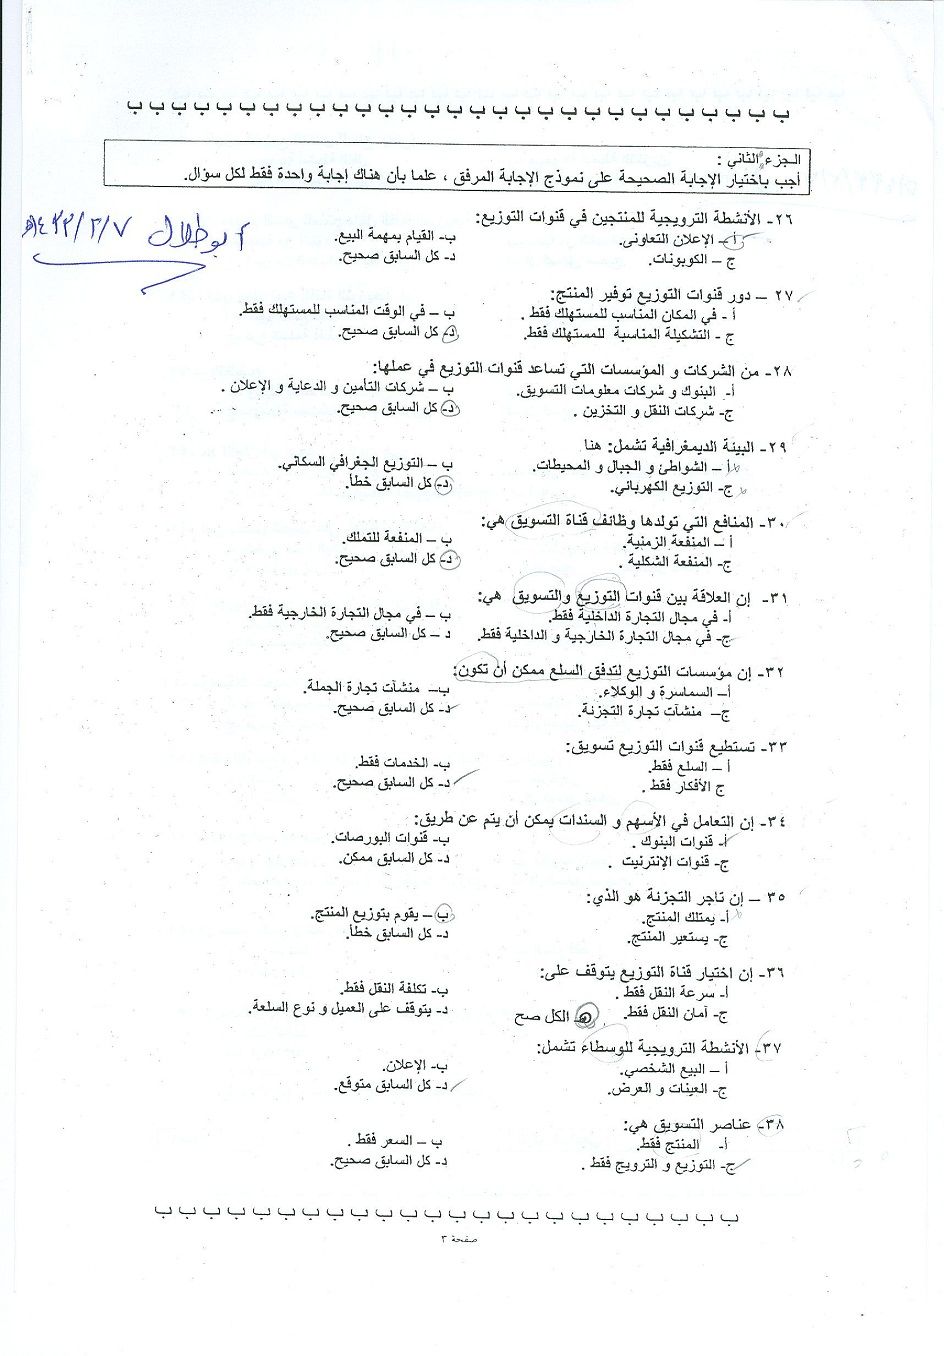 ب ب ب ب ب ب ب ب ب ب ب ب ب ب ب ب ب ب ب ب ب ب ب ب ب ب ب ب ب ب
الجزء الثاني :
أجب باختيار الإجابة الصحيحة على نموذج الإجابة المرفق ، علما بأن هناك إجابة واحدة فقط لكل سؤال.
أبو طلال ١٤٣٣/٢/٧هـ
٢٦- الأنشطة الترويجية للمنتجين في قنوات التوزيع:
أ- الإعلان التعاوني. ب- القيام بمهمة البيع.
ج – الكوبونات. د- كل السابق صحيح.
٢٧ – دور قنوات التوزيع توفير المنتج:
أ - في المكان المناسب للمستهلك فقط . ب – في الوقت المناسب للمستهلك فقط.
ج - التشكيلة المناسبة للمستهلك فقط. د- كل السابق صحيح.
٢٨- من الشركات و المؤسسات التي تساعد قنوات التوزيع في عملها:
أ- البنوك و شركات معلومات التسويق. ب – شركات التأمين و الدعاية و الإعلان .
ج- شركات النقل و التخزين . د- كل السابق صحيح.
٢٩- البيئة الديمغرافية تشمل: هنا
أ – الشواطئ و الجبال و المحيطات. ب – التوزيع الجغرافي السكاني.
ج- التوزيع الكهربائي. د- كل السابق خطأ.
٣٠- المنافع التي تولدها وظائف قناة التسويق هي:
أ – المنفعة الزمنية. ب – المنفعة للتملك.
ج- المنفعة الشكلية . د- كل السابق صحيح.
٣١- إن العلاقة بين قنوات التوزيع والتسويق هي:
أ- في مجال التجارة الداخلية فقط. ب – في مجال التجارة الخارجية فقط.
ج- في مجال التجارة الخارجية و الداخلية فقط. د – كل السابق صحيح.
٣٢- إن مؤسسات التوزيع لتدفق السلع ممكن أن تكون:
أ– السماسرة و الوكلاء. ب– منشآت تجارة الجملة.
ج– منشآت تجارة التجزئة. د- كل السابق صحيح.
٣٣- تستطيع قنوات التوزيع تسويق:
أ – السلع فقط. ب- الخدمات فقط.
ج الأفكار فقط . د- كل السابق صحيح.
٣٤- إن التعامل في الأسهم و السندات يمكن أن يتم عن طريق:
أ- قنوات البنوك . ب- قنوات البورصات.
ج- قنوات الإنترنيت . د- كل السابق ممكن.
٣٥ – إن تاجر التجزئة هو الذي:
أ- يمتلك المنتج. ب – يقوم بتوزيع المنتج.
ج- يستعير المنتج. د- كل السابق خطأ.
٣٦- إن اختيار قناة التوزيع يتوقف على:
أ- سرعة النقل فقط . ب- تكلفة النقل فقط.
ج- أمان النقل فقط. د- يتوقف على العميل و نوع السلعة.
هـ- الكل صح
٣٧- الأنشطة الترويجية للوسطاء تشمل:
أ – البيع الشخصي. ب- الإعلان.
ج- العينات و العرض. د- كل السابق متوقع.
٣٨- عناصر التسويق هي:
أ- المنتج فقط. ب – السعر فقط .
ج- التوزيع و الترويج فقط . د- كل السابق صحيح.
ب ب ب ب ب ب ب ب ب ب ب ب ب ب ب ب ب ب ب ب ب ب ب ب
صفحة ٣